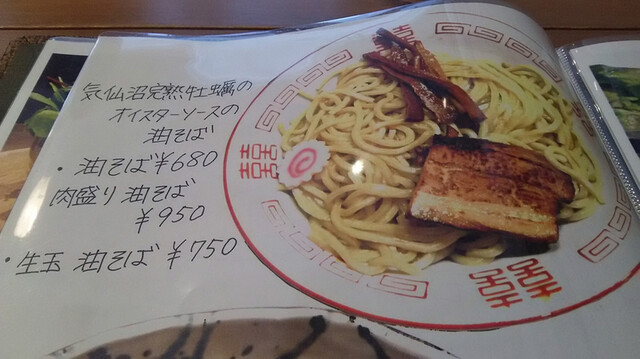 気仙沼完熟牡蠣の
オイスターソースの
油そば
・油そば ¥680
肉盛り油そば
¥950
・生玉 油そば ¥750
囍
囍